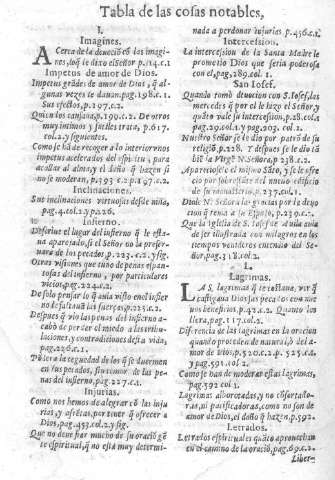 Tabla de las cosas notables,
I.
Imagines.
Acerca de la deuociõ cõ las imagines, loq̃ le dixo el Señor p.14.c.1
Impetus de amor de Dios.
Impetus grãdes de amor de Dios, q̃ algunas vezes le dauan.pag.198.c.1.
Sus efectos, p.197.c.2.
Quien los canjana, p.199.c.2. De otros
muy intimos y sutiles trata, p.617.
col.2. y siguientes.
Como se ha de recoger a lo interior nos
impetus acelerados del espiritu, para
acallar al alma, y el daño q̃ hazen si
no se moderan,
Inclinaciones.
Sus inclinaciones virtuosas desde niña,
pag.4.col.2.y p.226.
Infierno.
Descriue el lugar del infierno q̃ le estaua
aparejado, si el Señor no la preseruara
de los pecados, p.223.c.2.y sig.
Otras visiones que tuuo de penas espantosas
del infierno, por particulares
vicios, pag.224.c.2.
De solo pensar lo q̃ auia visto en el infierno
le faltauã las fuerças, 225.c.2.
Despues q̃ vio las penas del infierno acabó
de perder el miedo a las tribulaciones,
y contradiciones desta vida,
pag.226.c.1.
Piderar la ceguedad de los q̃ se duermen
en sus pecados, sin temor de las penas
del infierno, pag.227.c.1.
Injurias.
Como nos hemos de alegrar cõ las injurias
y afrẽtas, por tener q̃ ofrecer a
Dios, pag.453.col.2.y sig.
Que no deue fiar mucho de su oraciõ gẽte
espiritual, q̃ no está muy determinada
a perdonar injurias p.456.c.1.
Intercession.
La intercession de la Santa Madre le
prometio Dios que seria poderosa
con el, pag.289.col.1.
San Iosef.
Quando tomó deuocion con S. Iosef, las
mercedes q̃ por el le hizo el Señor, y
quãto vale su intercession, p.28.col.1
pag.29.col.1.y pag.203. col.2.
Nuestro Señor se le dio por patrõ de su
religiõ, p.228. Y despues se le dio tãbiẽ
la Virgẽ N. Señora, p.238.c.2.
Aparecio se el mismo Sãto, y se le ofrecio
por sobrestãte del nueuo edificio
de su monasterio, p.237.col.1.
Diole Nr̃a Señora las gracias por la deuociõ
que tenia a su Esposo, p.239.c.2.
Que la iglesia de S. Iosef de Auila auia
de ser ilustrada con milagros en los
tiempos venideros entendio del Señor,
pag.318.col.2.
L.
Lagrimas.
LAS lagrimas q̃
castigaua Dios los pecados con nueuos
beneficios, p.42.c.2. Quanto
llora, pag.117.col.2.
Diferencia de las lagrimas en la oracion
quando proceden de natural, ò del amor
de Dios, p.520.c.2. p. 525.c.1.
y pag.591.col.2.
Como se han de moderar estas lagrimas,
pag.592 col 1.
Lagrimas alborotadas, y no cõfortatiuas,
ni pacificadoras, como no son de
amor de Dios, el daño q̃ hazen, p.592.
Letrados.
Letrados espirituales quãto aprouechan
en el camino de la oraciõ, pag.69.c.2.
Liber-